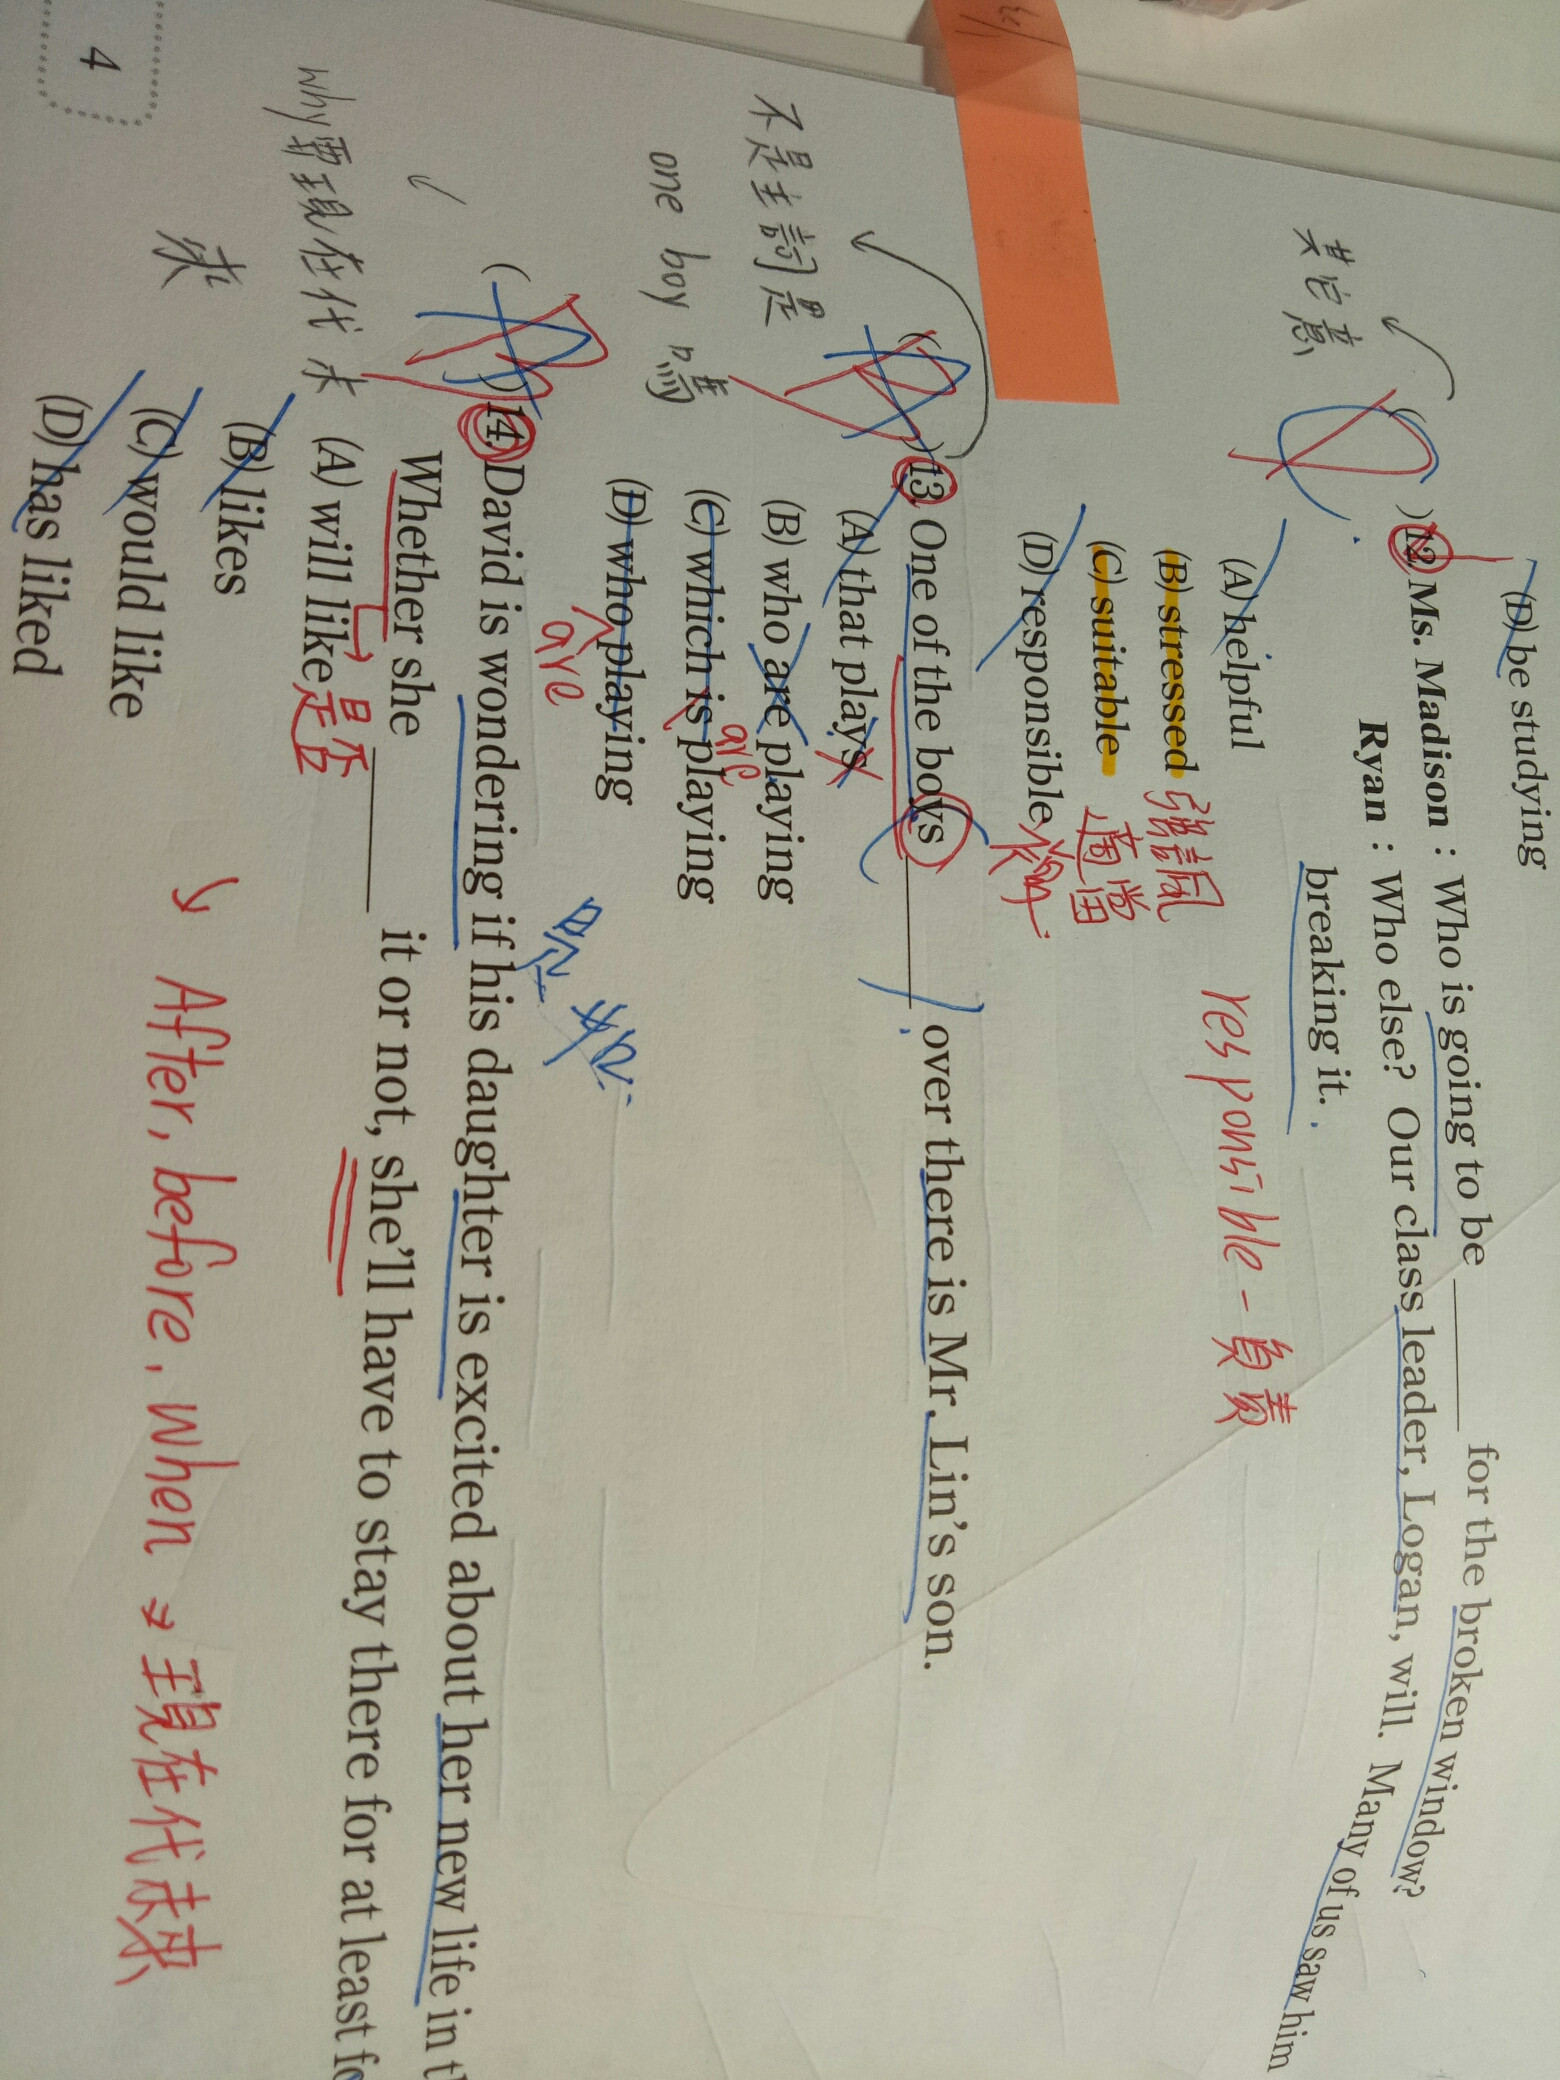 (D) be studying
其它意
( D )12. Ms. Madison : Who is going to be ______ for the broken window?
Ryan : Who else? Our class leader, Logan, will. Many of us saw him
breaking it.
(A) helpful
responsible - 負責
(B) stressed
(C) suitable 適當
(D) responsible
不是主詞是
one boy 嗎
( )13. One of the boys ______ over there is Mr. Lin's son.
(A) that plays
(B) who are playing
are
(C) which is playing
(D) who playing
are
( )14. David is wondering if his daughter is excited about her new life in
Whether she ______ it or not, she'll have to stay there for at least
why 現在代未
來
(A) will like
是否
(B) likes
(C) would like
(D) has liked
↳ After, before, when → 現在代未來
4